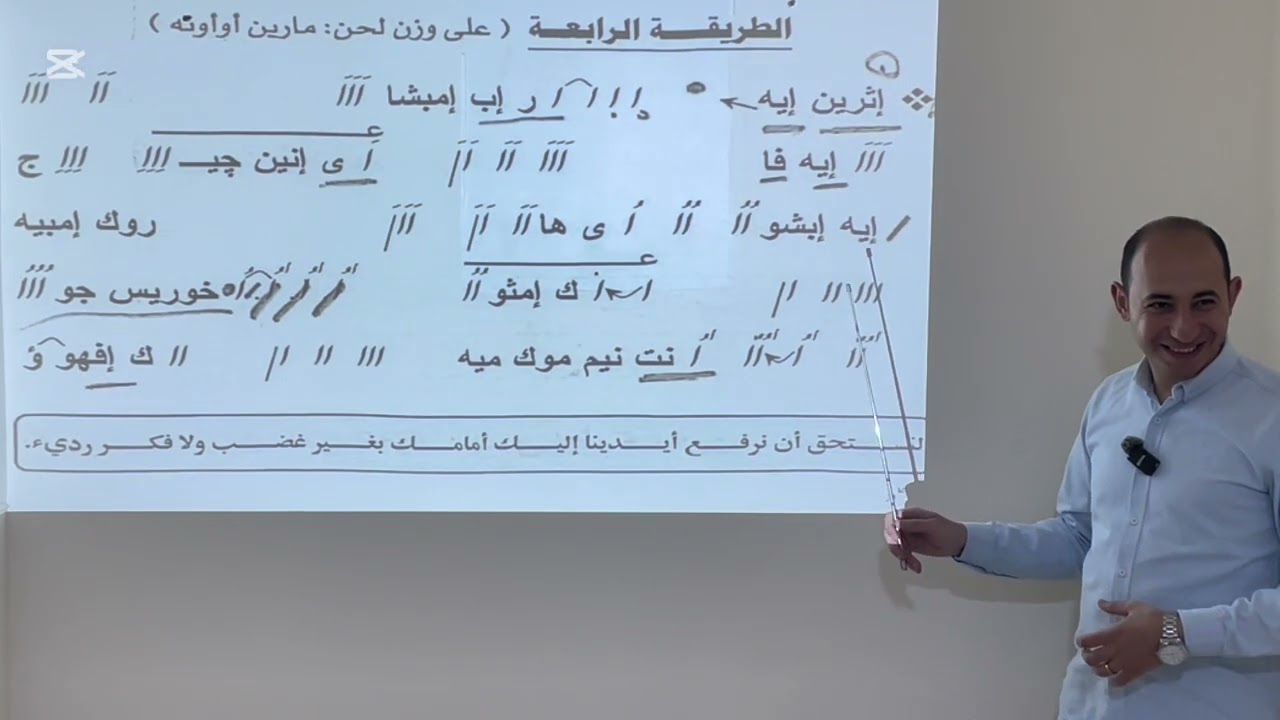 الطريقة الرابعة ( على وزن لحن: مارين أوأونه )
إثرين إيه ر إب إمبشا
إيه فا أ ى إنين چيـ ج
إيه إبشو أ ى ها روك إمبيه
ك إمثو خوريس جو
أ نت نيم موك ميه ك إفهو ؤ
لنستحق أن نرفع أيدينا إليك أمامك بغير غضب ولا فكر ردىء.